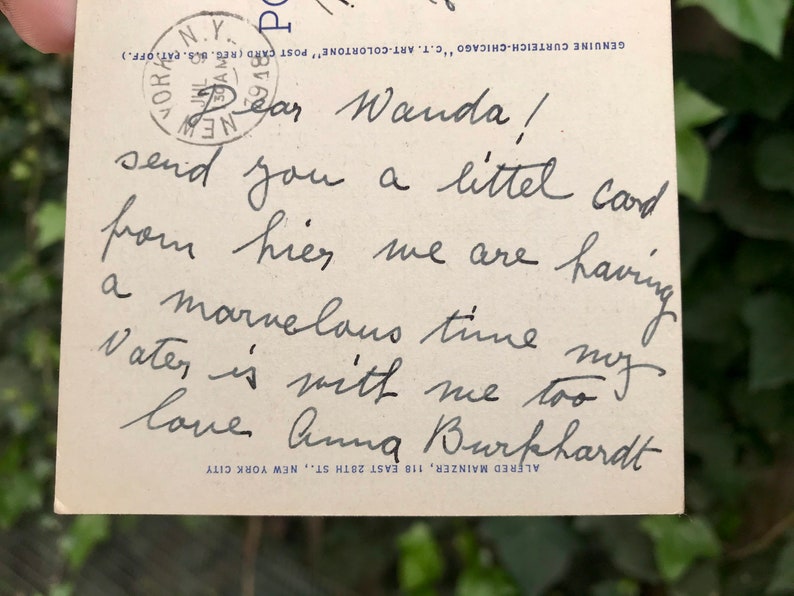 PO
GENUINE CURTEICH-CHICAGO "C.T. ART-COLORTONE" POST CARD (REG. U.S. PAT. OFF.)
NEW YORK, N.Y.
JUL 9
30 AM
1948
Dear Wanda!
send you a littel card
from hier we are having
a marvelous time my
Vater is with me too
love Anna Burkhardt
ALFRED MAINZER, 118 EAST 28TH ST., NEW YORK CITY